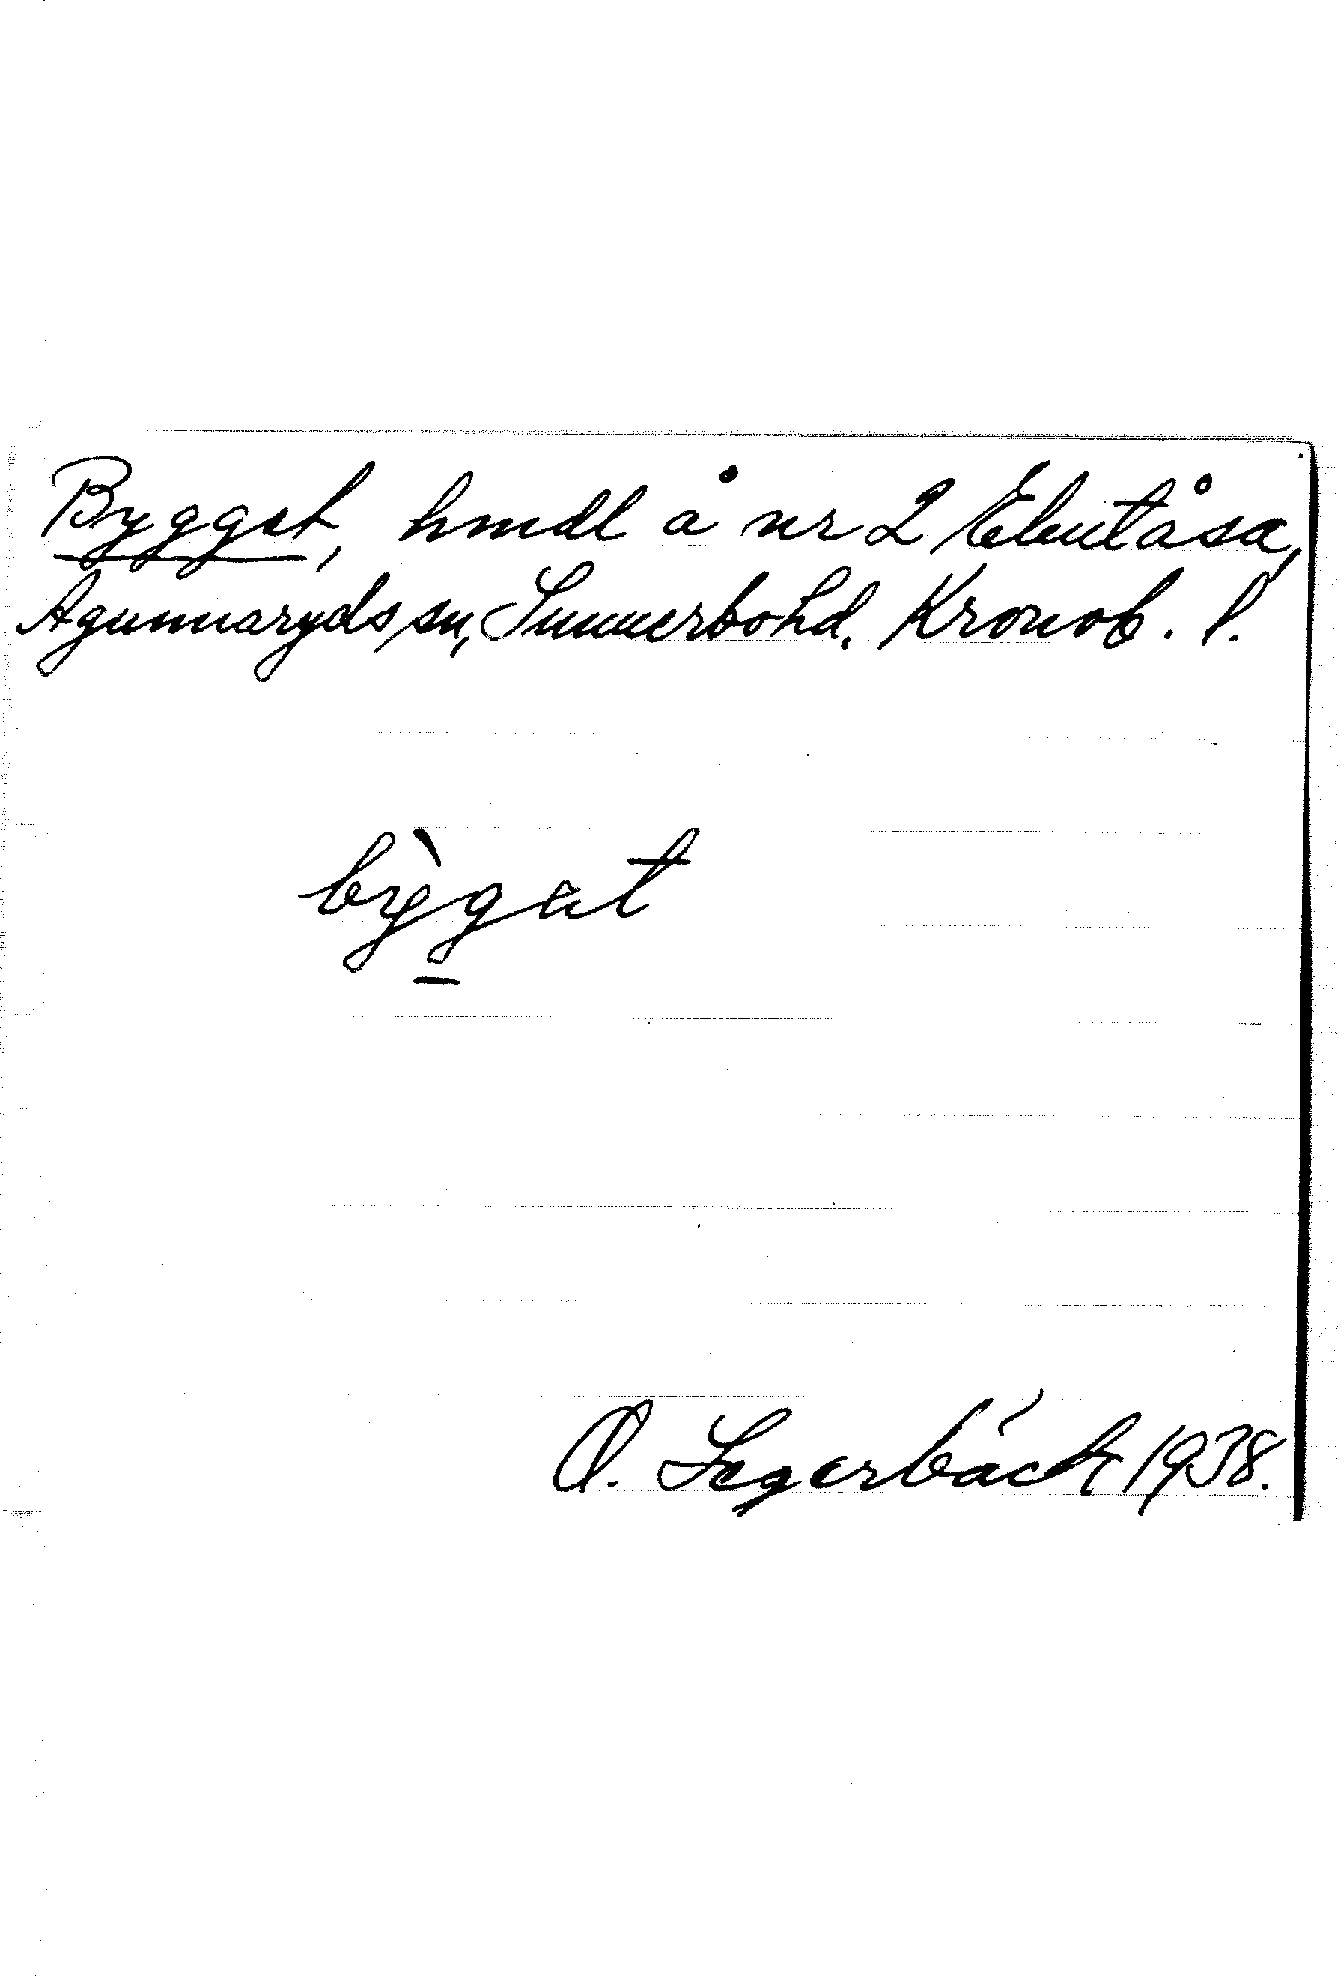 Bygget, hmdl å nr 2 Ebutåsa,
Agunnaryds sn, Sunnerbo hd. Kronob. l.
bỳgət
O. Segerbäck 1938.